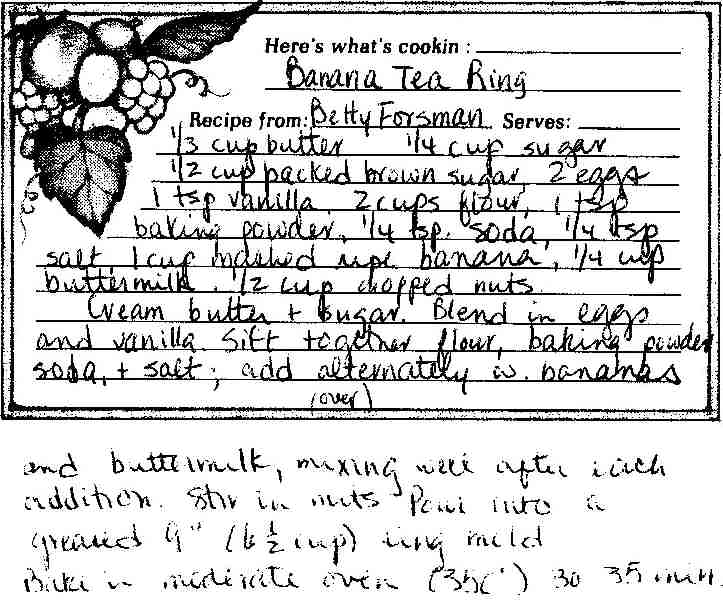 Here's what's cookin :
Banana Tea Ring
Recipe from: Betty Forsman Serves:
1/3 cup butter 1/4 cup sugar
1/2 cup packed brown sugar, 2 eggs
1 tsp vanilla, 2 cups flour, 1 tsp
baking powder, 1/4 tsp. soda, 1/4 tsp
salt 1 cup mashed ripe banana, 1/4 cup
buttermilk. 1/2 cup chopped nuts.
Cream butter + sugar. Blend in eggs
and vanilla. Sift together flour, baking powder
soda, + salt; add alternately w. bananas
(over)
and buttermilk, mixing well after each
addition. Stir in nuts Pour into a
greased 9" (6 1/2 cup) ring mold
Bake in moderate oven (350°) 30 35 min.